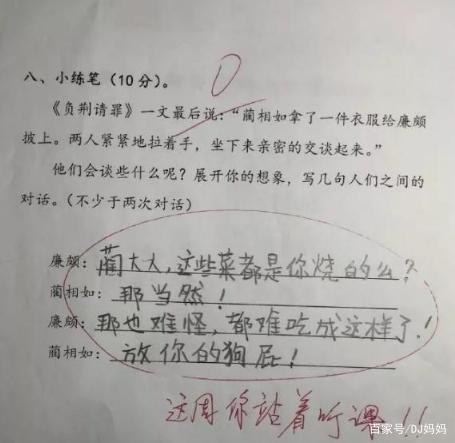 0
八、小练笔(10分)。
《负荆请罪》一文最后说:“蔺相如拿了一件衣服给廉颇
披上。两人紧紧地拉着手,坐下来亲密的交谈起来。”
他们会谈些什么呢?展开你的想象,写几句人们之间的
对话。(不少于两次对话)
廉颇:蔺大大,这些菜都是你烧的么?
蔺相如:那当然!
廉颇:那也难怪,都难吃成这样了!
蔺相如:放你的狗屁!
这周你站着听课!!
百家号/DJ妈妈